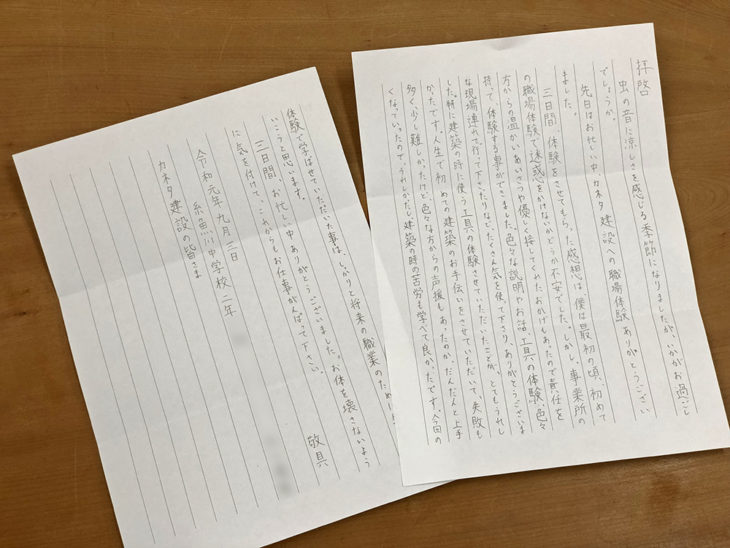 拝啓
虫の音に涼しさを感じる季節になりましたが、いかがお過ごし
でしょうか。
先日はお忙い中、カネタ建設への職場体験ありがとうござい
ました。
三日間、体験をさせてもらった感想は、僕は最初の頃、初めて
の職場体験で迷惑をかけないかどうか不安でした。しかし、事業所の
方からの温かいあいさつや優しく接してくれたおかげもあったので責任を
持って体験する事ができました。色々な説明やお話、工具の体験、色々
な現場連れて行って下さったりなど、たくさん気を使って下さり、ありがとうございま
した。特に建築の時に使う工具の体験させていただいたことが、とてもうれし
かったです。人生で初めての建築のお手伝いをさせていただいて、失敗も
多く、少し難しかったけど、色々な方からの声援もあったのか、だんだんと上手
くなっていったので、うれしかったし建築の時の苦労も学べて良かったです。今回の
体験で学ばせていただいた事は、しっかりと将来の職業のために
いこうと思います。
三日間、お忙しい中ありがとうございました。お体を壊さないよう
に気を付けて、これからもお仕事がんばって下さい。
敬具
令和元年九月二日
糸魚川中学校二年
カネタ建設の皆さま